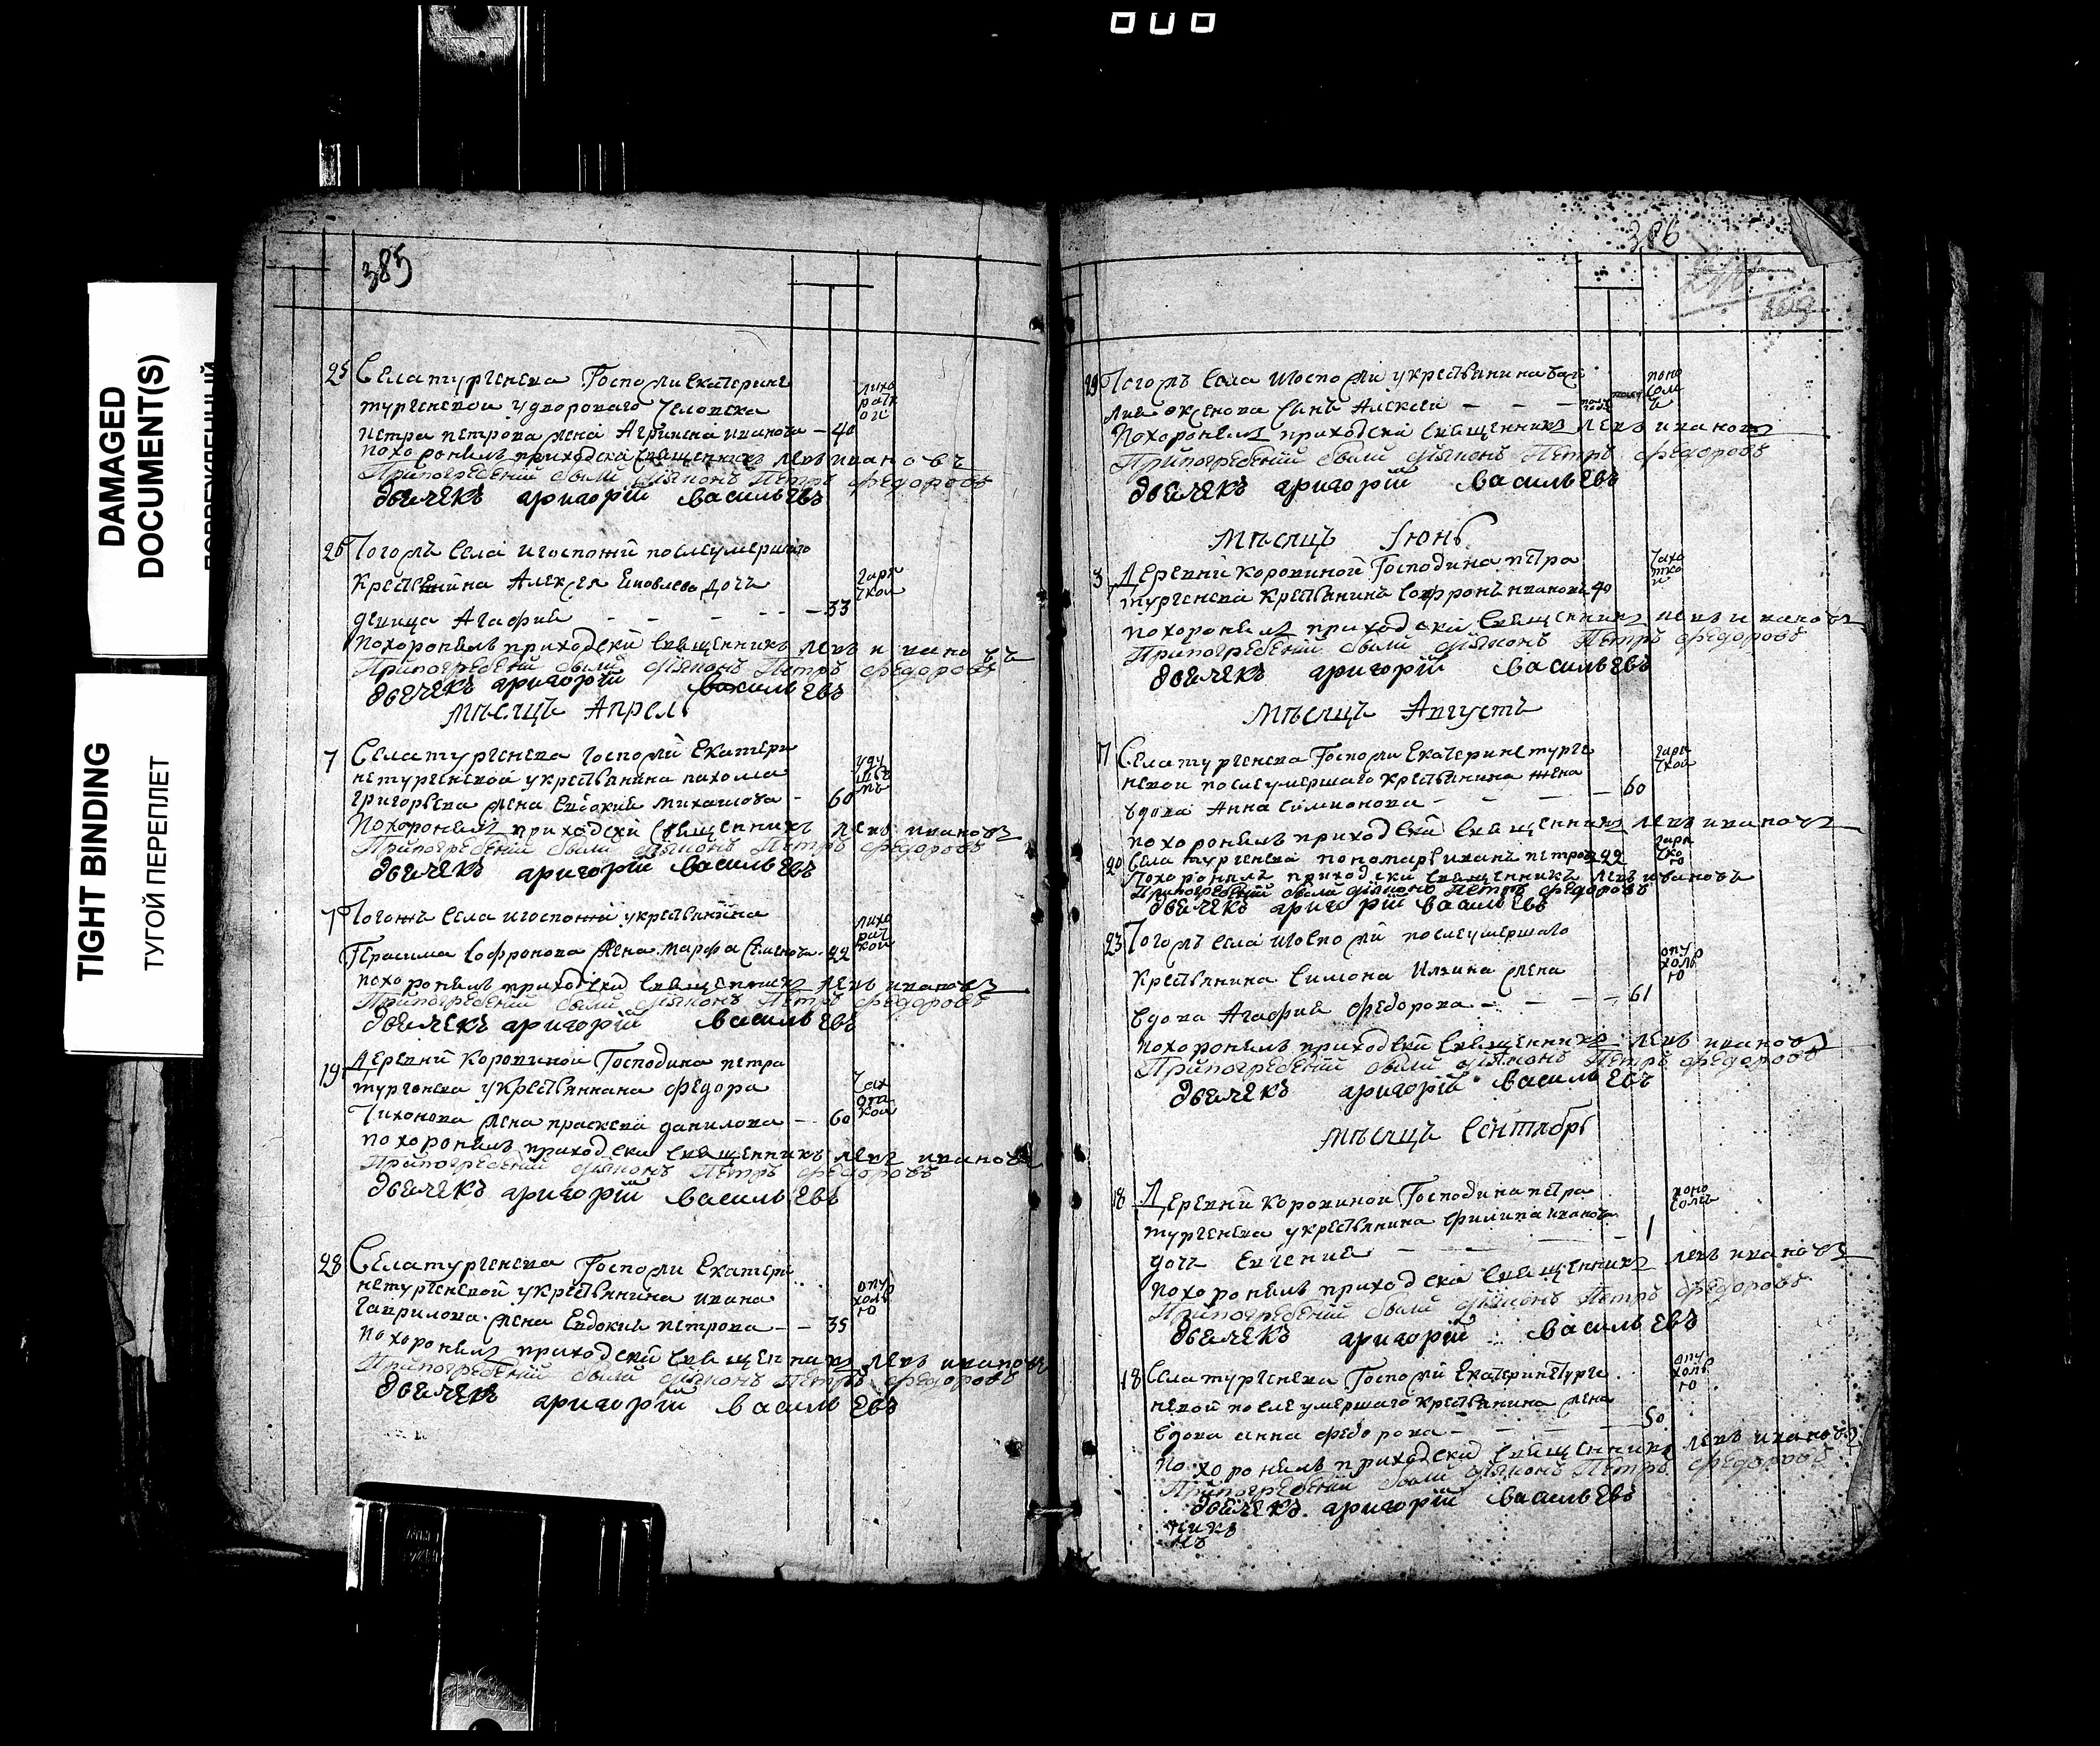 DAMAGED
DOCUMENT(S)
TIGHT BINDING
ТУГОЙ ПЕРЕПЛЕТ
385
25 Села тургенева Госпожи Екатерине
лихо
тургеневои у двороваго человека
петра петрова жена Агрипена иванова - 40
похоронилъ приходски священникъ левъ ивановъ
Припогребенїи были диаконъ Петръ федоровъ
дьячекъ григорїи васильевъ
26 Тогожъ села и госпожи после умершаго
крестьянина Алексея Яковлева дочь
горя
чкои
девица Агафия - - - - 33
похоронилъ приходски священникъ левъ ивановъ
Припогребенїи были диаконъ Петръ федоровъ
дьячекъ григорїи васильевъ
мѣсяцъ Апрель
7 Села тургенева госпожи Екатери
не тургеневои у крестьянина пахома
уду
шье
мъ
григорьева жена Евдокия михаилова - 60
похоронилъ приходски священникъ левъ ивановъ
Припогребенїи были диаконъ Петръ федоровъ
дьячекъ григорїи васильевъ
7 Тогожъ села и госпожи у крестьянина
лихо
рат
кои
Герасима Софронова жена марфа Семенова - 22
похоронилъ приходски священникъ левъ ивановъ
Припогребенїи были диаконъ Петръ федоровъ
дьячекъ григорїи васильевъ
19 Деревни Коровинои Господина петра
тургенева у крестьянина федора
чах
отко
Тихонова жена прасковя данилова - 60
похоронилъ приходски священникъ левъ ивановъ
Припогребенїи диаконъ Петръ федоровъ
дьячекъ григорїи васильевъ
28 Села тургенева Госпожи Екатери
не тургеневои у крестьянина ивана
опу
холь
ю
гаврилова жена Евдокия петрова - - 35
похоронилъ приходски священникъ левъ ивановъ
Припогребенїи были диаконъ Петръ федоровъ
дьячекъ григорїи васильевъ
386
29 Тогожъ села и госпожи у крестьянина
поно
сом
ъ
Аксенова сынъ Алексеи - - -
похоронилъ приходски священникъ левъ ивановъ
Припогребенїи были диаконъ Петръ федоровъ
дьячекъ григорїи васильевъ
мѣсяцъ Iюнь
3 Деревни коровиной Господина петра
чахо
тко
и
тургенева крестьянинъ Софронъ ивановъ 40
похоронилъ приходски священникъ левъ ивановъ
Припогребенїи были диаконъ Петръ федоровъ
дьячекъ григорїи васильевъ
мѣсяцъ Августъ
17 Села тургенева Госпожи Екатерине турге
горя
чкои
невои после умершаго крестьянина жена
вдова Анна Симионова - - - - 60
похоронилъ приходски священникъ левъ ивановъ
20 Села тургенева пономарь иванъ петровъ 22
горя
чко
ю
похоронилъ приходски священникъ левъ ивановъ
Припогребенїи были диаконъ Петръ федоровъ
дьячекъ григорїи васильевъ
23 Тогожъ села и госпожи после умершаго
крестьянина Симона Илина жена
опу
холь
ю
вдова Агафия федорова - - - - 61
похоронилъ приходски священникъ левъ ивановъ
Припогребенїи были диаконъ Петръ федоровъ
дьячекъ григорїи васильевъ
мѣсяцъ Сентябрь
18 Деревни Коровинои Господина петра
поно
сомъ
тургенева у крестьянина филипа иванова
дочь Евгения - - - - 1
похоронилъ приходски священникъ левъ ивановъ
Припогребенїи были диаконъ Петръ федоровъ
дьячекъ григорїи васильевъ
18 Села тургенева Госпожи Екатерине турге
опу
холь
ю
невой после умершаго крестьянина жена
вдова анна федорова - - - - 50
похоронилъ приходски священникъ левъ ивановъ
Припогребенїи были диаконъ Петръ федоровъ
дьячекъ григорїи васильевъ